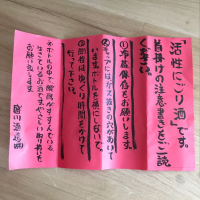 「活性にごり酒」です。
首掛けの注意書きをご一読
ください。
①冷蔵保存をお願いします
②キャップにはガス抜きの穴があいて
います。ボトルを横にしないで
③開栓はゆっくり時間をかけて
行って下さい。
※ボトルの中で、醗酵がすすんでいる
生きているお酒ですので、やさしいお取り扱いを
お願い致します。